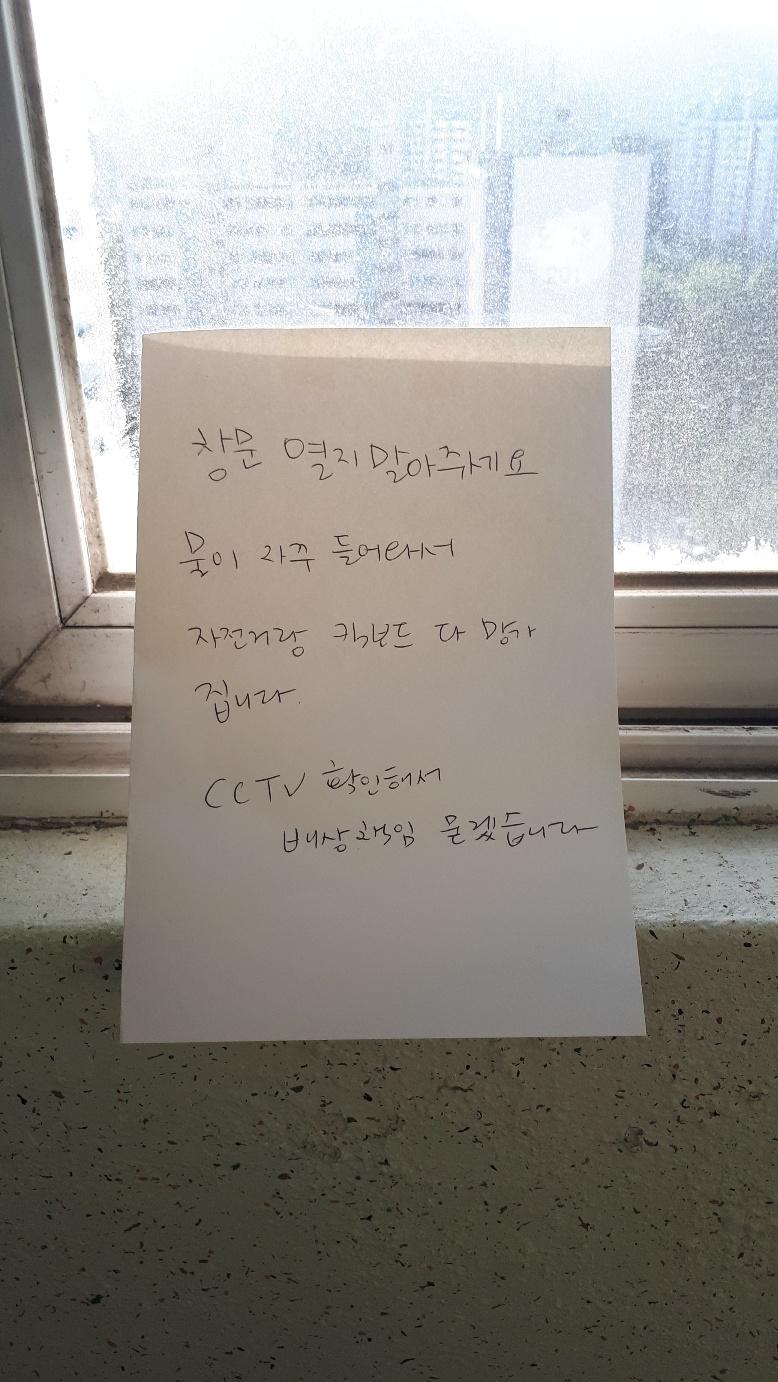 창문 열지말아주세요
물이 자꾸 들어와서
자전거랑 킥보드 다 망가
집니다.
CCTV 확인해서
배상책임 묻겠습니다